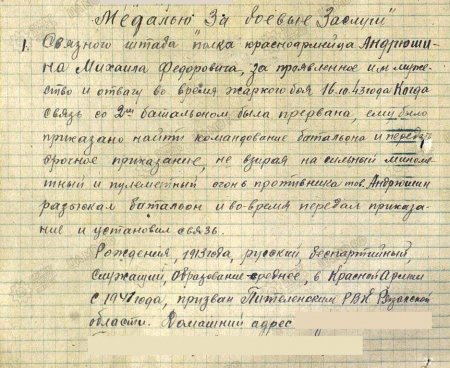 "Медалью За боевые Заслуги"
1. Связного штаба полка красноармейца Андрюши-
на Михаила Федоровича, за проявленное им муже-
ство и отвагу во время жаркого боя 16.10.43 года Когда
связь со 2ым батальоном была прервана, ему было
приказано найти командование батальона и передать
срочное приказание, не взирая на сильный миноме-
тный и пулеметный огонь противника тов. Андрюшин
разыскал батальон и во-время передал приказа-
ние и установил связь.
Рождения, 1913 года, русский, беспартийный,
служащий, образование-среднее, в Красной Армии
с 1941 года, призван Пителенским РВК Рязанской
области. Домашний адрес